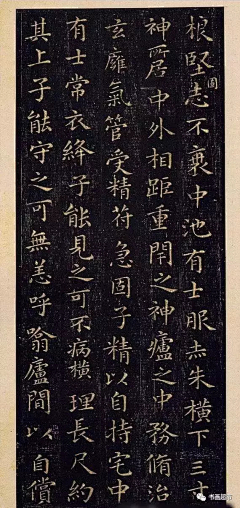 根堅志不衰中池有士服赤朱横下三寸
固
神所居中外相距重閇之神廬之中務脩治
玄廱氣管受精符急固子精以自持宅中
有士常衣絳子能見之可不病横理長尺約
其上子能守之可無恙呼噏廬間以自償
书画超市